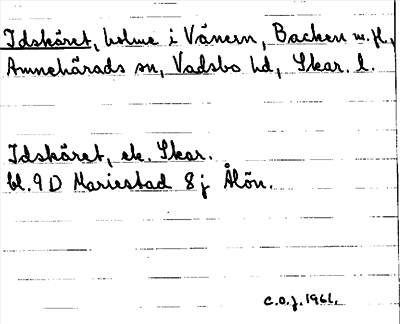 Idskäret, holme i Vänern, Backen m.fl.,
Amnehärads sn, Vadsbo hd, Skar. l.
Idskäret, ek. Skar.
bl. 9 D Mariestad 8 j Ålön.
c.o.j. 1966.